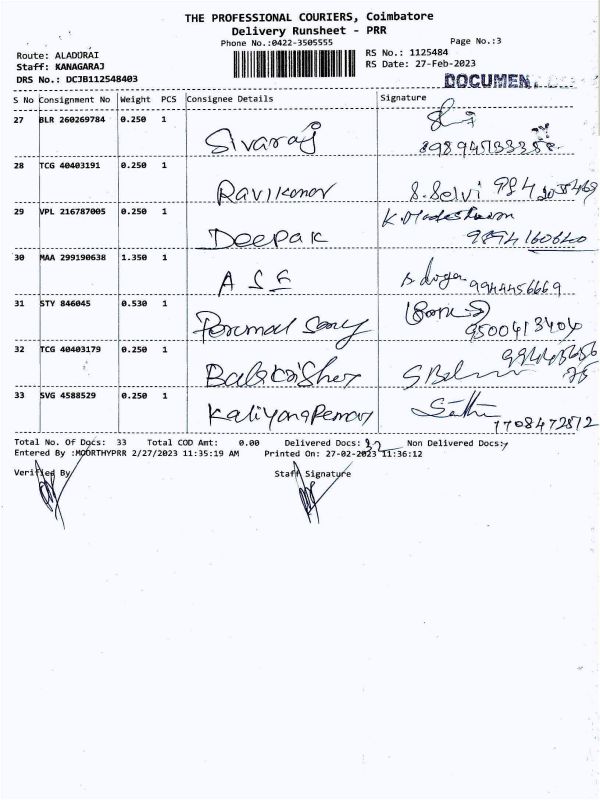 THE PROFESSIONAL COURIERS, Coimbatore
Delivery Runsheet - PRR
Phone No.:0422-3505555 Page No.:3
Route: ALADURAI RS No.: 1125484
Staff: KANAGARAJ RS Date: 27-Feb-2023
DRS No.: DCJB112548403 DOCUMENT
S No Consignment No Weight PCS Consignee Details Signature
27 BLR 260269784 0.250 1
Sivaraj
28 TCG 40403191 0.250 1
Ravikumar S. Selvi
29 VPL 216787005 0.250 1
Deepak 9894160620
30 MAA 299190638 1.350 1
A S E 9944456669
31 STY 846045 0.530 1
Perumal Samy 9500413404
32 TCG 40403179 0.250 1
33 SVG 4588529 0.250 1
Kaliyana Perumal
7708472812
Total No. Of Docs: 33 Total COD Amt: 0.00 Delivered Docs: 32 Non Delivered Docs:
Entered By :MOORTHYPRR 2/27/2023 11:35:19 AM Printed On: 27-02-2023 11:36:12
Verified By Staff Signature